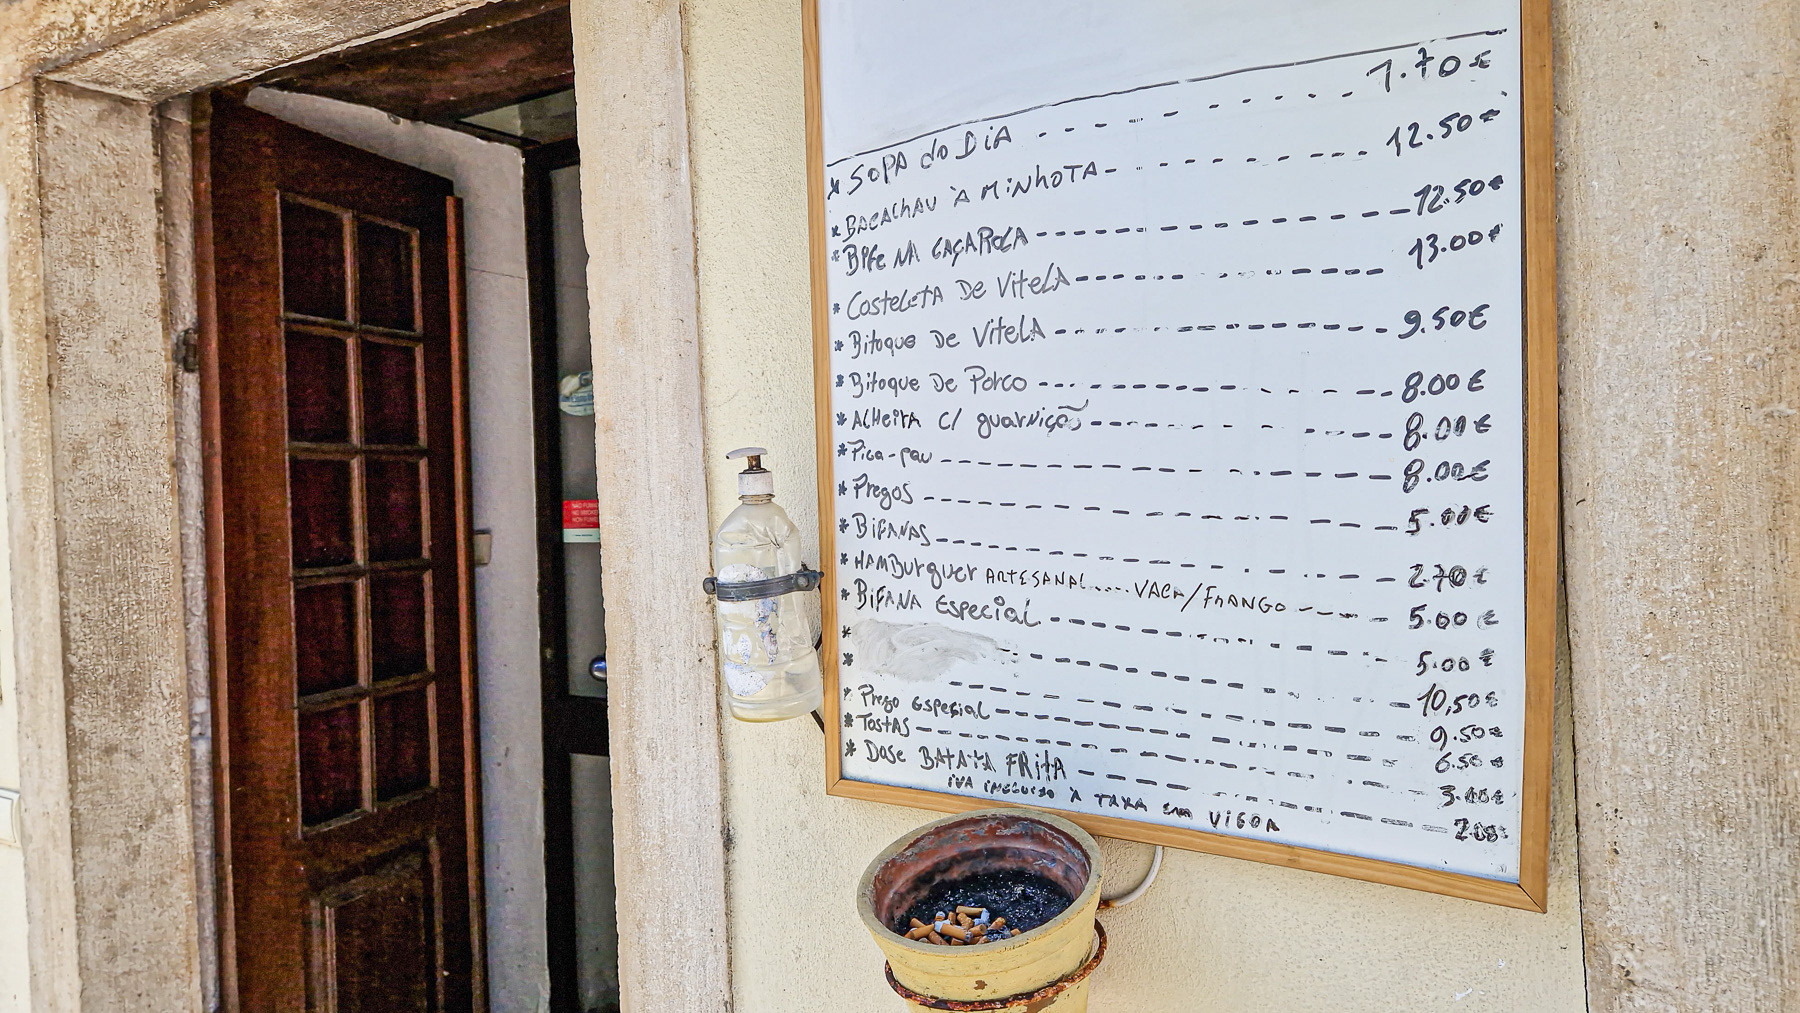 * SOPA do DiA - - - - 1.70€
* BACALHAU À MiNHOTA - - - - 12.50€
* BiFe NA CAÇAROLA - - - - 12.50€
* Costeleta De VitelA - - - - 13.00€
* Bitoque De VitelA - - - - 9.50€
* Bitoque De Porco - - - - 8.00€
* ALHeirA c/ guarnição - - - - 8.00€
* Pica-pau - - - - 8.00€
* Pregos - - - - 5.00€
* BiFANAS - - - - 2.70€
* HAMBurguer ARTESANAL.... VACA/FRANGO - - - - 5.00€
* BiFANA Especial - - - - 5.00€
* - - - - 10,50€
* - - - - 9.50€
* Prego Especial - - - - 6.50€
* TostAS - - - - 3.00€
* Dose BAtAtA FRitA - - - - 2.00€
iVA iNCLUiDO À TAXA em ViGOR
NO